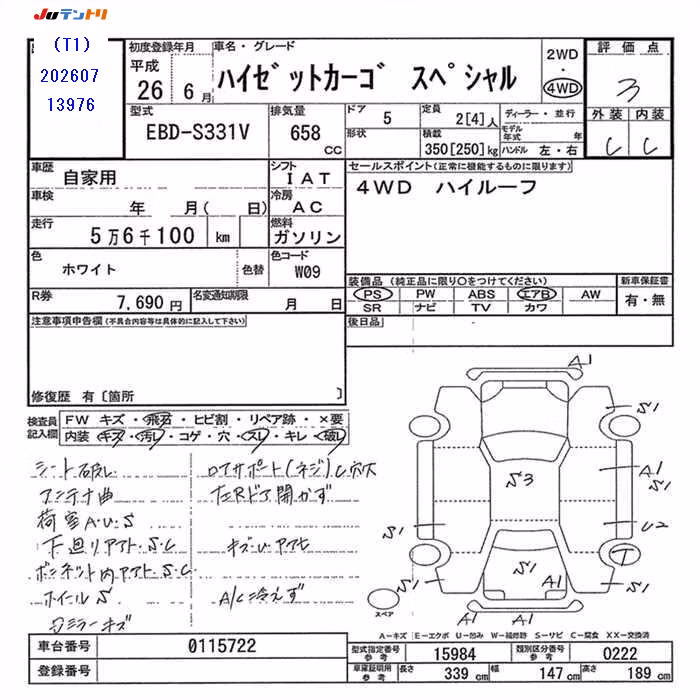 JUテントリ
(T1)
202607
13976
初度登録年月
平成
26 6月
車名・グレード
ハイゼットカーゴ スペシャル
2WD
・
4WD
評価点
3
外装 内装
C C
型式
EBD-S331V
排気量
658
cc
ドア 5
形状
定員 2[4]人
積載 350[250]kg
ディーラー・並行
モデル年式 年
ハンドル 左・右
車歴 自家用
シフト IAT
車検 年 月( 日)
冷房 AC
走行 5万6千100 km
燃料 ガソリン
色 ホワイト 色替
色コード W09
R券 7,690円
名変通知期限 月 日
セールスポイント(正常に機能するものに限ります)
4WD ハイルーフ
装備品 (純正品に限り○をつけてください)
PS PW ABS エアB AW
SR ナビ TV カワ
新車保証書
有・無
後日品
注意事項申告欄(不具合内容等は具体的に記入して下さい)
修復歴 有〔箇所 〕
検査員記入欄
FW キズ・飛石・ヒビ割・リペア跡・×要
内装・キズ・汚レ・コゲ・穴・スレ・キレ・破レ
シート破レ
アンテナ曲
荷室A・U・S
下廻リアト・S・C
ボンネット内アト・S・C
ホイールS
ロアサポート(ネジ)C穴大
左Rドア開かず
キズ・U・アセ
A/C冷えず
A1
S1
A1
S1
S3
U2
S1
S1
T
S1
S1
A1
S1
A1 A1
スペア
A-キズ E-エクボ U-凹み W-補修跡 S-サビ C-腐食 XX-交換済
車台番号 0115722
登録番号
型式指定番号 参考 15984
類別区分番号 参考 0222
車庫証明用 参考
長さ 339 cm
幅 147 cm
高さ 189 cm